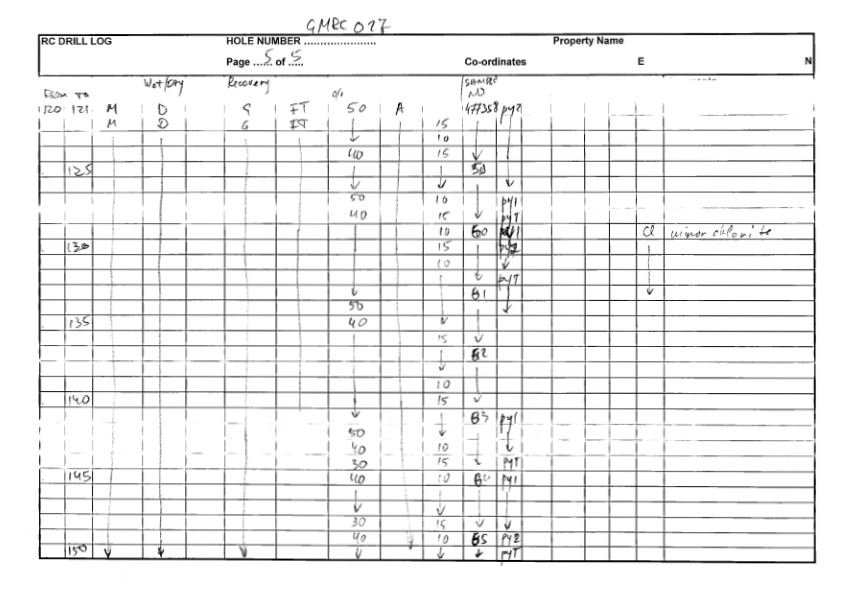 GMRC 027
RC DRILL LOG HOLE NUMBER ........................ Property Name
Page ...5.. of ..5... Co-ordinates E N
Wet/Dry Recovery SAMPLE
FROM TO o/o NO
120 121 M D G FT 50 A 477358 py2
M D G 15
10
40 15
125
50 10 py1
40 15 pyT
10 60 py1 Cl minor chlorite
130 15 py2
10
pyT
61
50
135 40
15
62
10
140 15
63 py1
50
40 10
30 15 pyT
145 40 10 64 py1
30 15
40 10 65 py2
150 pyT